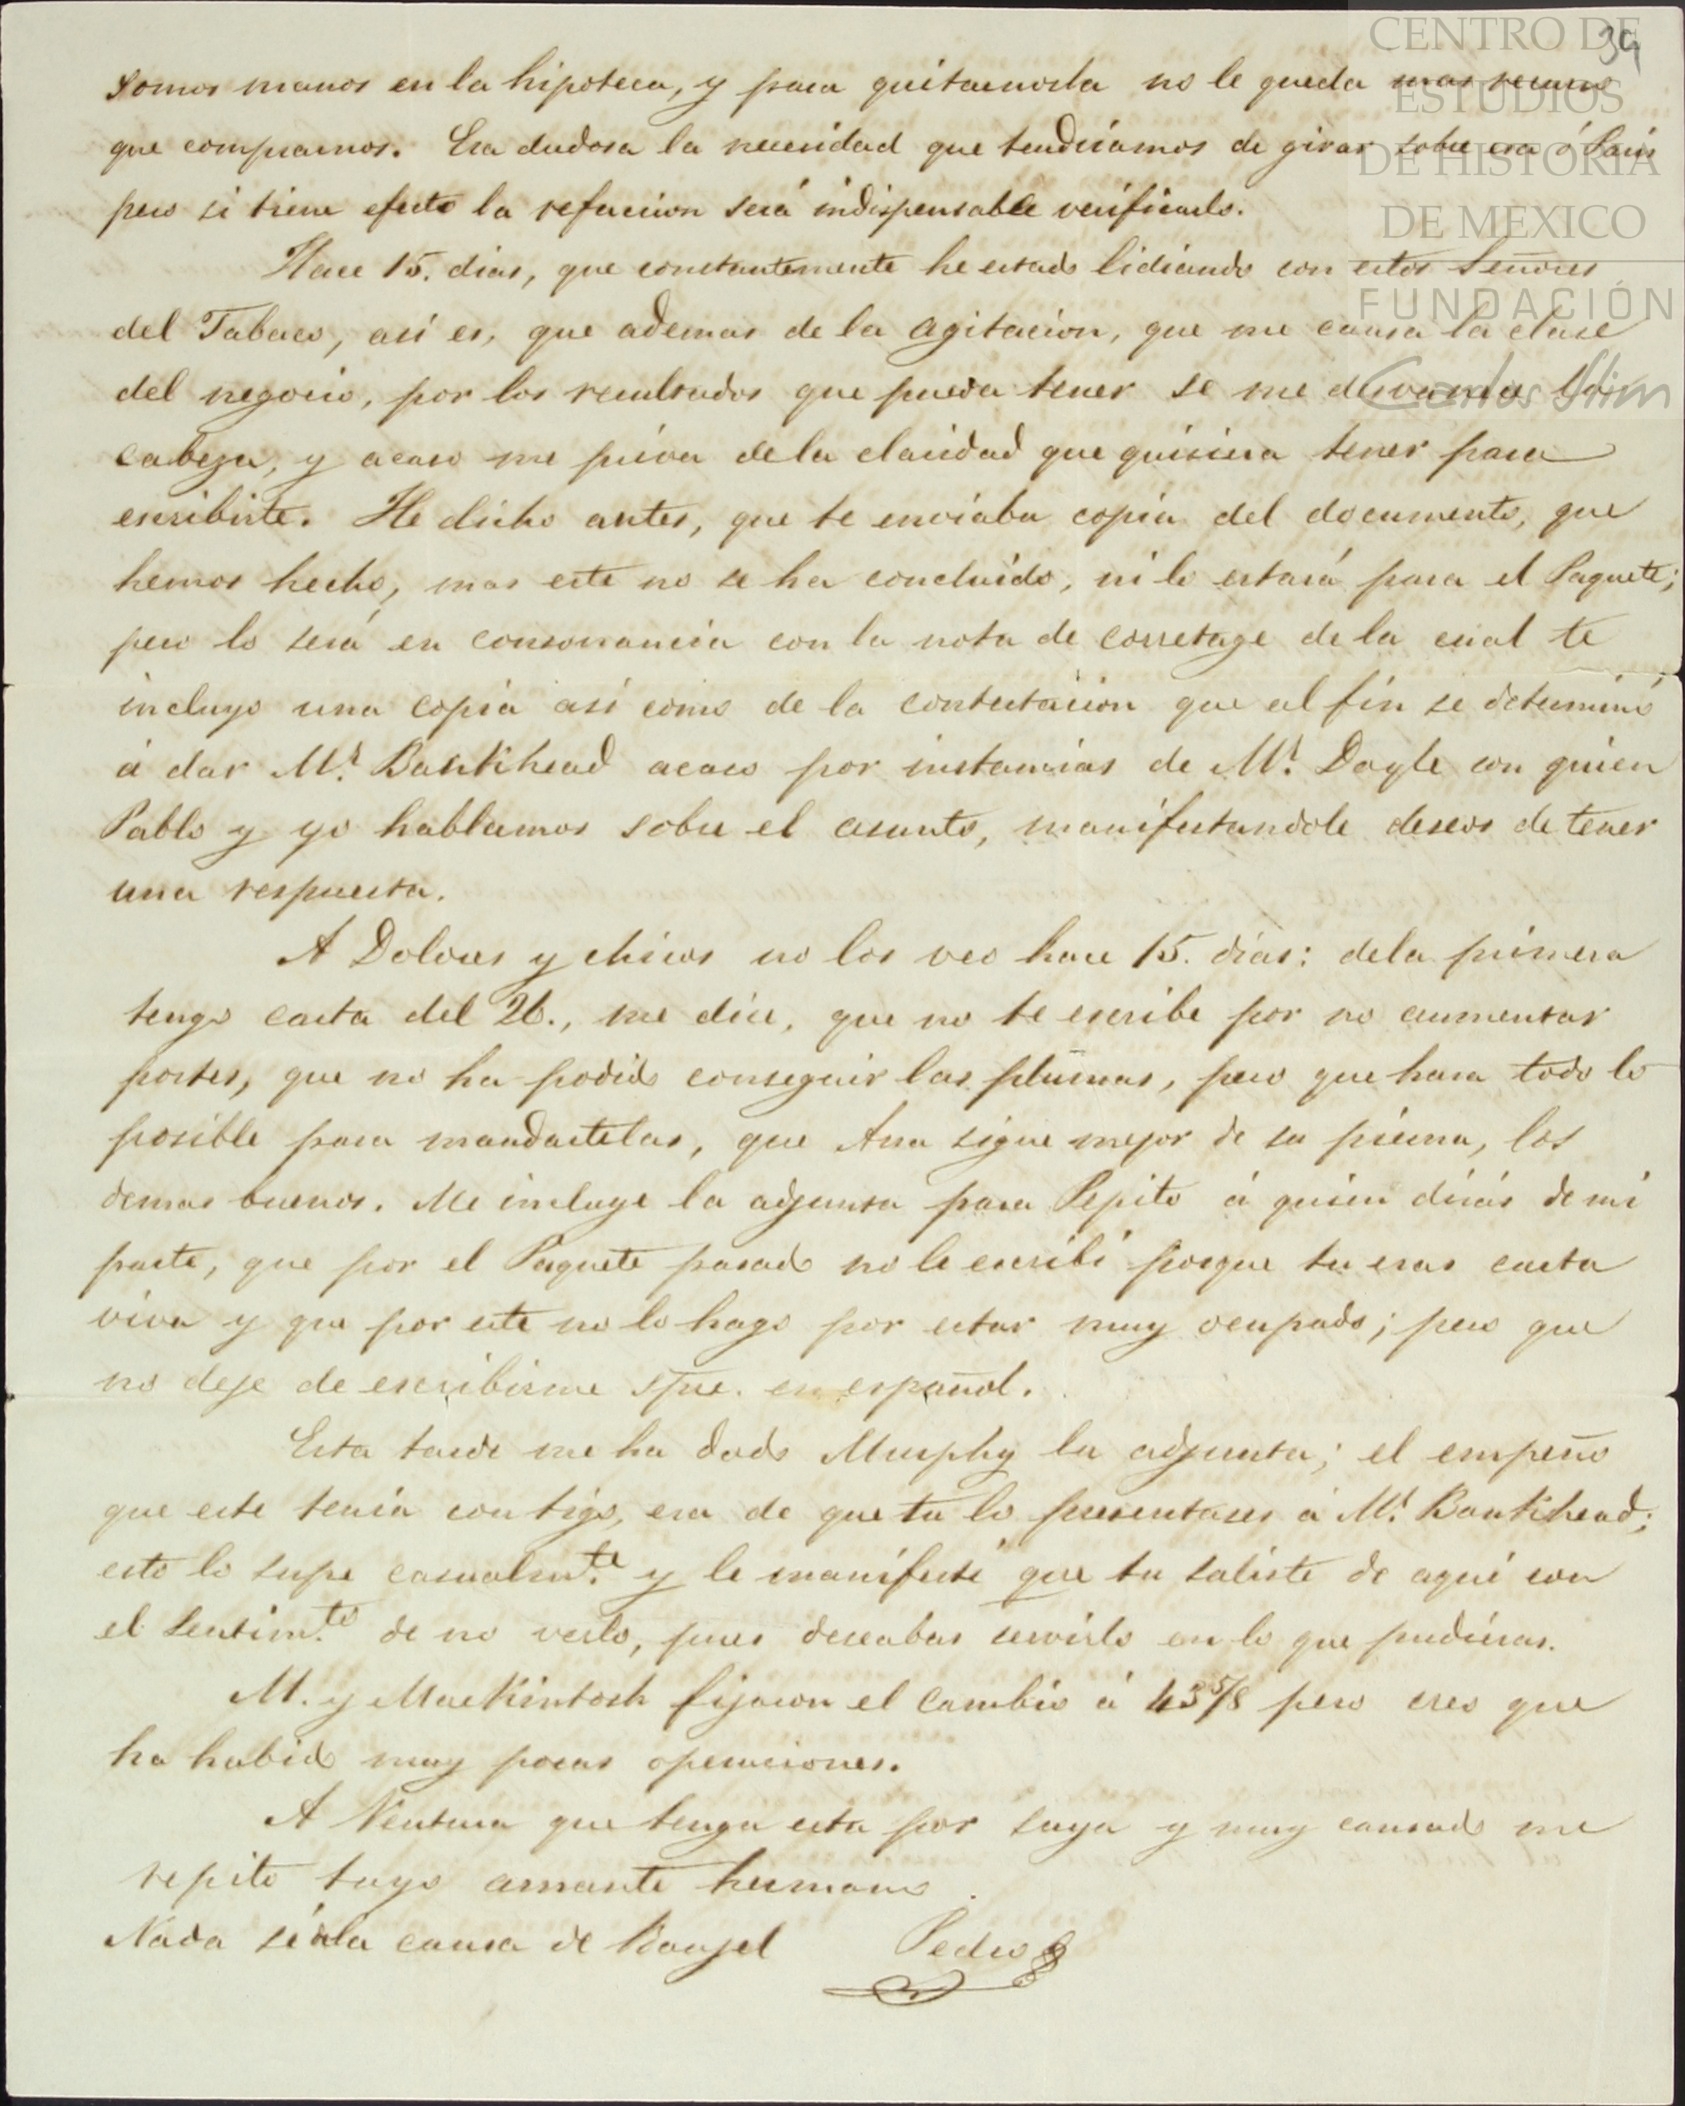 39
CENTRO DE
ESTUDIOS
DE HISTORIA
DE MEXICO
FUNDACIÓN
Carlos Slim
somos manos en la hipoteca, y para quitarnosla no le queda mas recurso
que comprarnos. Era dudosa la necesidad que tendriamos de girar sobre esa ó Paris
pero si tiene efecto la refaccion será indispensable verificarlo.
Hace 15. dias, que constantemente he estado lidiando con estos Señores
del Tabaco, asi es, que ademas de la agitacion, que me causa la clase
del negocio, por los resultados que pueda tener se me desvanece la
cabeza, y acaso me priva de la claridad que quisiera tener para
escribirte. He dicho antes, que te enviaba copia del documento, que
hemos hecho, mas este no se ha concluido, ni lo estará para el Paquete;
pero lo será en consonancia con la nota de corretage de la cual te
incluyo una copia asi como de la contestacion que al fin se determinó
á dar Mr. Bankhead acaso por instancias de Mr. Doyle con quien
Pablo y yo hablamos sobre el asunto, manifestandole deseos de tener
una respuesta.
A Dolores y chicos no los veo hace 15. dias: de la primera
tengo carta del 26., me dice, que no te escribe por no aumentar
portes, que no ha podido conseguir las plumas, pero que hara todo lo
posible para mandartelas, que Ana sigue mejor de su pierna, los
demas buenos. Me incluye la adjunta para Pepito á quien dirás de mi
parte, que por el Paquete pasado no le escribí porque tu eras carta
viva y que por este no lo hago por estar muy ocupado; pero que
no deje de escribirme spre. en español.
Esta tarde me ha dado Murphy la adjunta; el empeño
que este tenia contigo, era de que tu lo presentases á Mr. Bankhead;
esto lo supe casualmte. y le manifesté que tu saliste de aqui con
el sentimto. de no verlo, pues deseabas servirlo en lo que pudieras.
M. y MacKintosh fijaron el cambio á 43 5/8 pero creo que
ha habido muy pocas operaciones.
A Ventura que tenga esta por suya y muy cansado me
repito tuyo amante hermano
Nada sé de la causa de Pedro